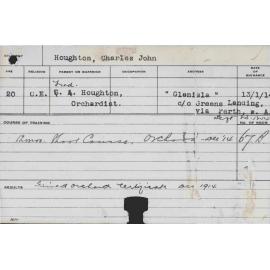 STUDENT Houghton, Charles John
AGE RELIGION PARENT OR GUARDIAN OCCUPATION ADDRESS DATE OF ENTRANCE
Fred.
20 C.E. C. A. Houghton, "Glenisla" 13/1/14
Orchardist. c/o Greens Landing,
via Perth, W. A.
COURSE OF TRAINING NO. OF
Course. Orchard Dec '14 67
RESULTS Gained Orchard Certificate Dec 1914